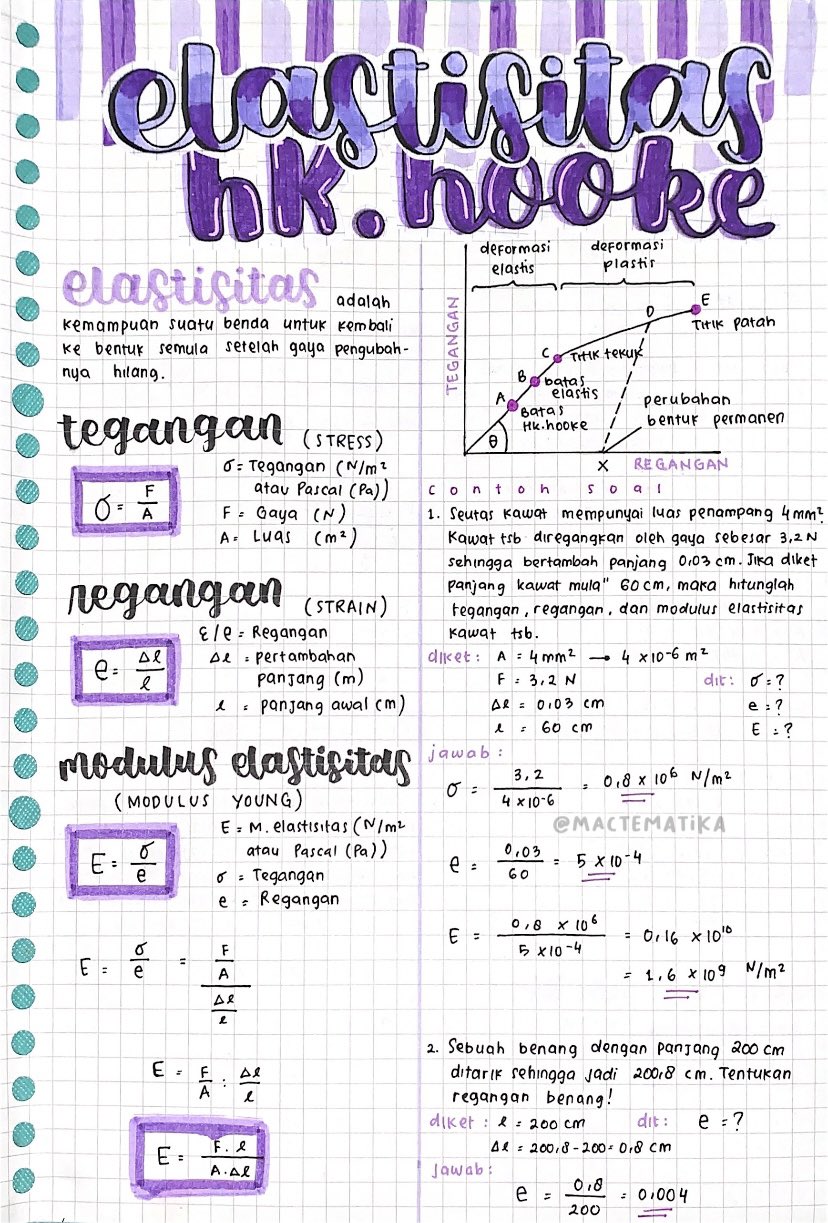 elastisitas
hk. hooke
elastisitas adalah
kemampuan suatu benda untuk kembali
ke bentuk semula setelah gaya pengubah-
nya hilang.
tegangan (STRESS)
σ = F/A
σ = Tegangan (N/m²
atau Pascal (Pa))
F = Gaya (N)
A = Luas (m²)
regangan (STRAIN)
e = Δl/l
ε/e = Regangan
Δl = pertambahan
panjang (m)
l = panjang awal (m)
modulus elastisitas
(MODULUS YOUNG)
E = σ/e
E = M. elastisitas (N/m²
atau Pascal (Pa))
σ = Tegangan
e = Regangan
E = σ/e = F/A / Δl/l
E = F/A : Δl/l
E = F. l / A. Δl
deformasi
elastis
deformasi
plastis
TEGANGAN
E
Titik patah
D
C
Titik tekuk
B
batas
elastis
A
Batas
Hk. hooke
θ
perubahan
bentuk permanen
X
REGANGAN
contoh soal
1. Seutas kawat mempunyai luas penampang 4 mm².
Kawat tsb diregangkan oleh gaya sebesar 3,2 N
sehingga bertambah panjang 0,03 cm. Jika diket
panjang kawat mula" 60 cm, maka hitunglah
tegangan, regangan, dan modulus elastisitas
kawat tsb.
diket: A = 4 mm² → 4 x10-6 m²
F = 3,2 N
Δl = 0,03 cm
l = 60 cm
dit: σ = ?
e = ?
E = ?
jawab:
σ = 3,2 / 4 x10-6 = 0,8 x 10⁶ N/m²
@MACTEMATIKA
e = 0,03 / 60 = 5 x 10-4
E = 0,8 x 10⁶ / 5 x10-4 = 0,16 x 10¹⁰
= 1,6 x 10⁹ N/m²
2. Sebuah benang dengan panjang 200 cm
ditarik sehingga jadi 200,8 cm. Tentukan
regangan benang!
diket: l = 200 cm dit: e = ?
Δl = 200,8 - 200 = 0,8 cm
Jawab:
e = 0,8 / 200 = 0,004